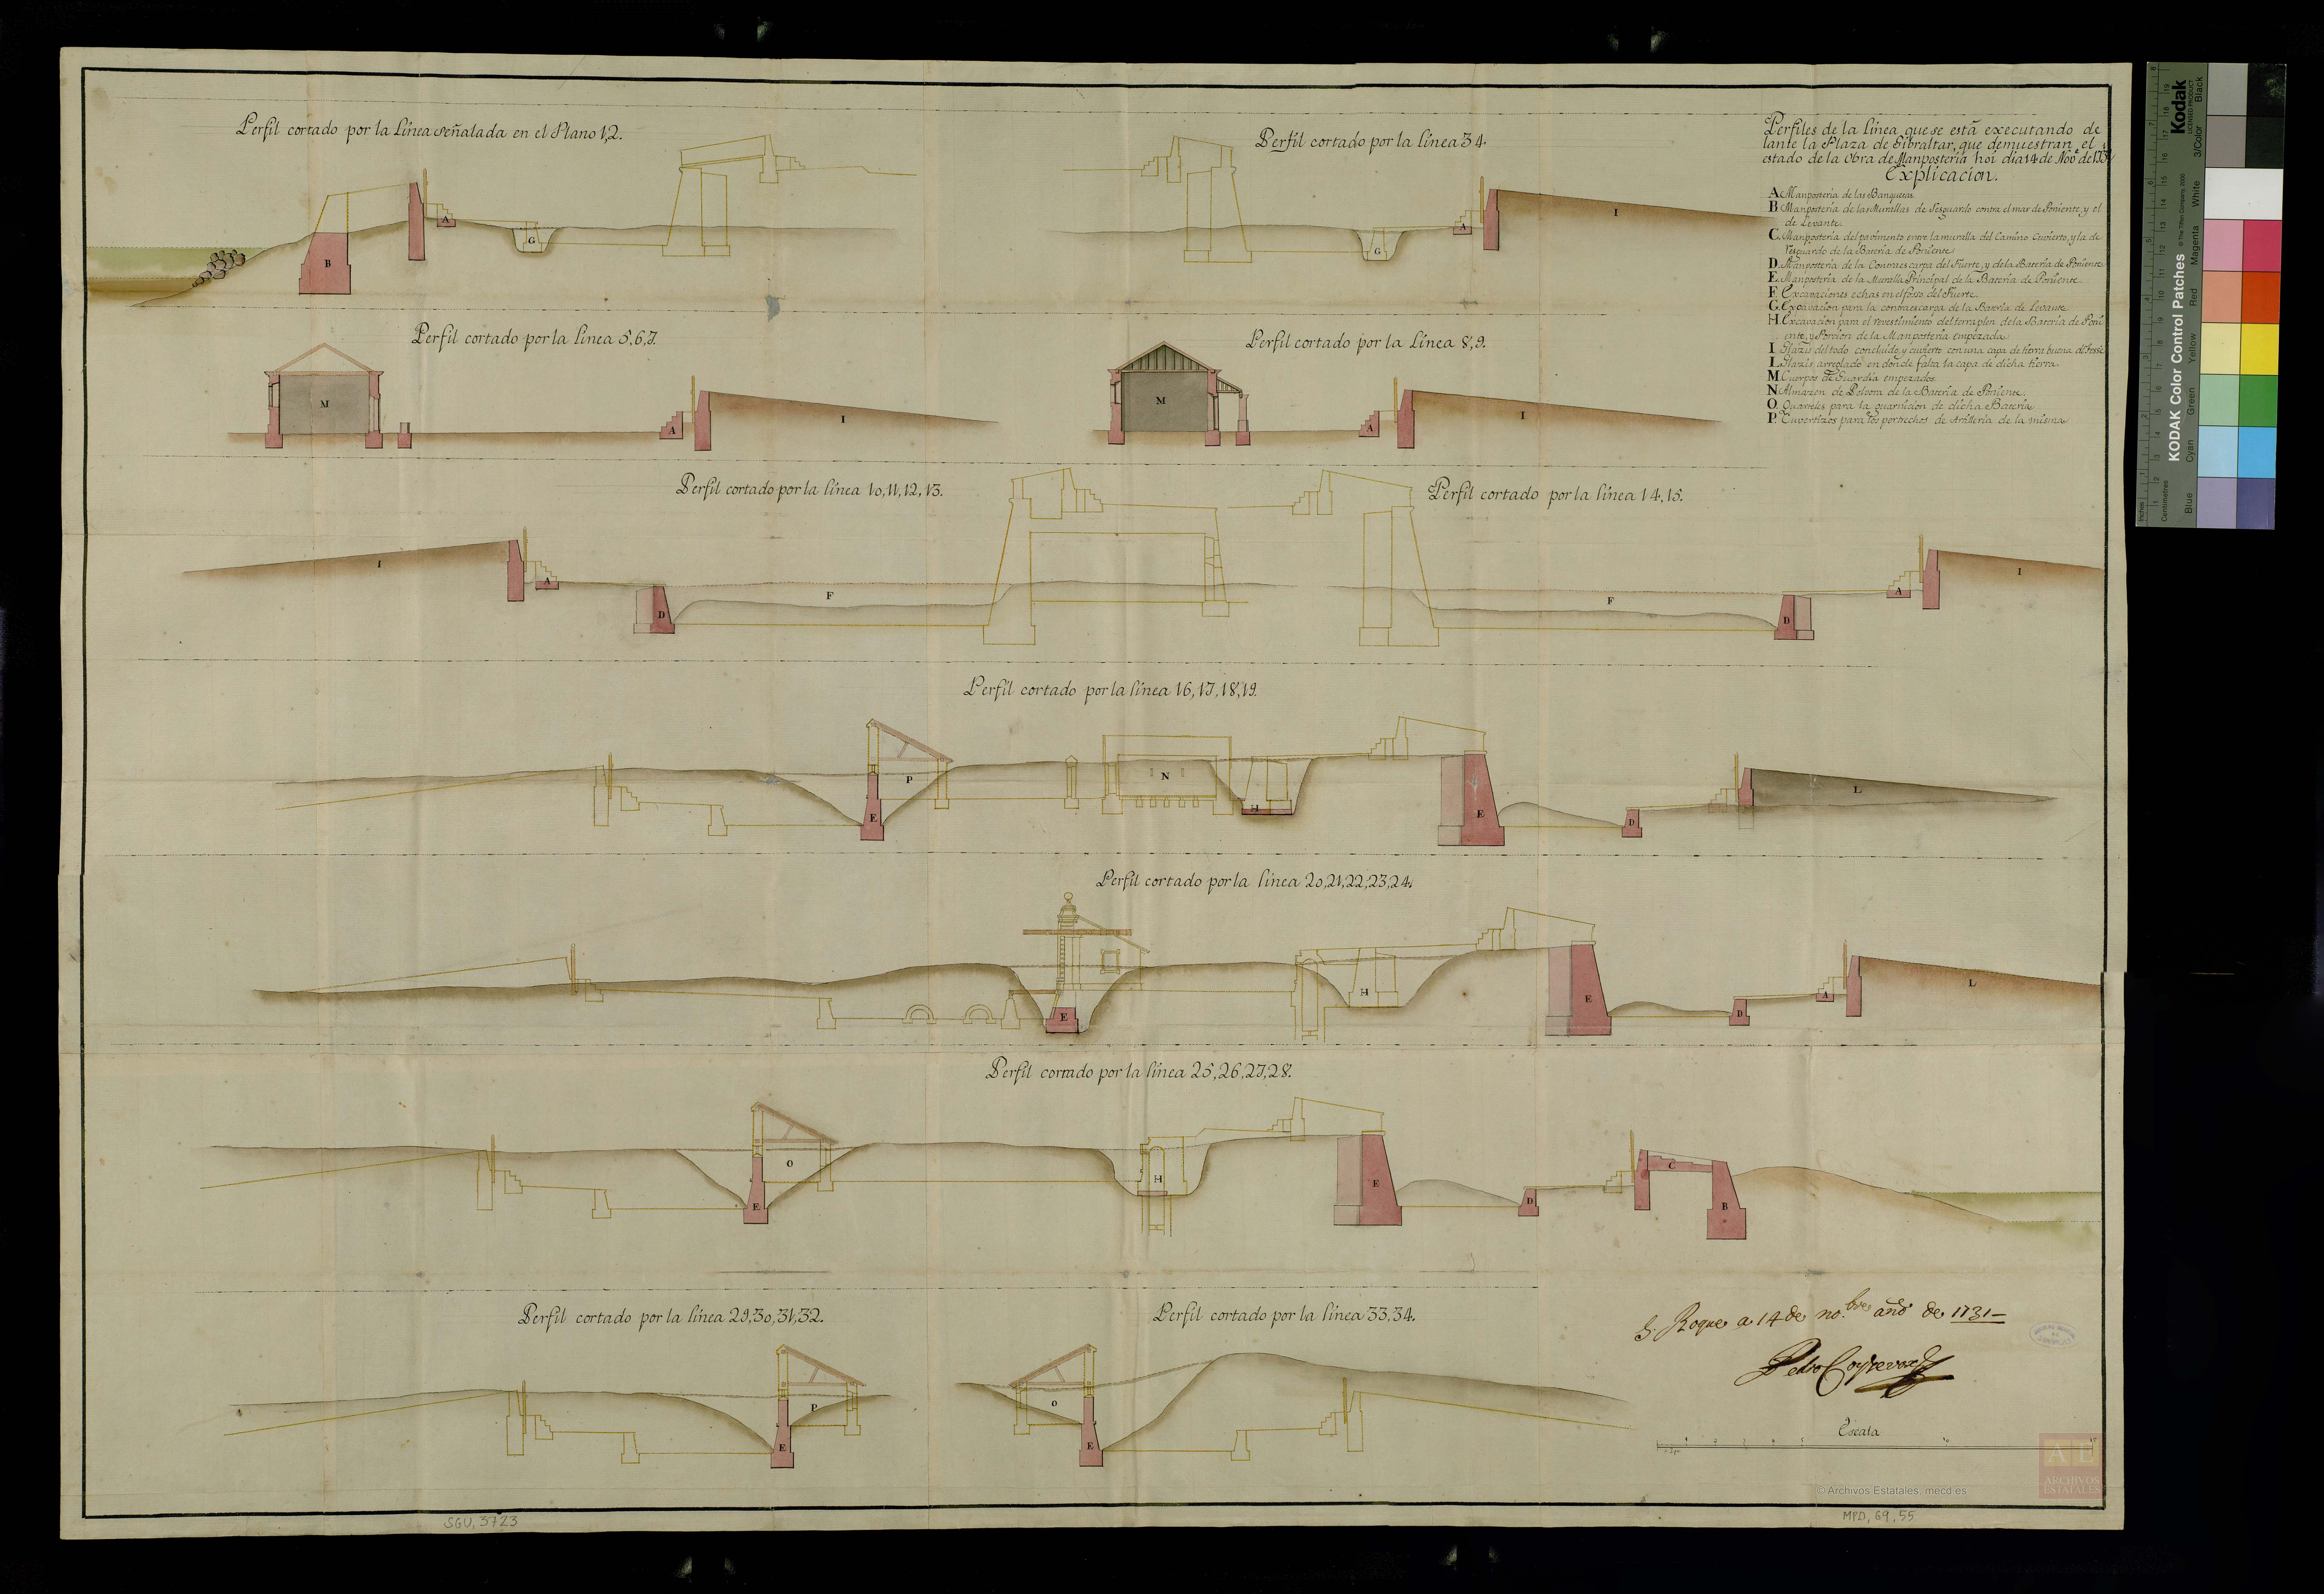 Perfiles de la Linea que se está executando de
lante la Plaza de Gibraltar, que demuestran el
estado de la Obra de Manposteria hoi dia 14 de Nov.e de 1731
Explicacion.
A Manposteria de las Banquetas
B Manposteria de las Murallas de Resguardo contra el mar de Poniente, y el
de Levante.
C. Manposteria del pavimento entre la muralla del Camino Cuvierto, y la de
resguardo de la Bateria de Poniente
D. Manposteria de la Contraescarpa del Fuerte, y de la Bateria de Poniente
E. Manposteria de la Muralla Principal de la Bateria de Poniente
F. Excavaciones echas en el foso del Fuerte.
G. Excavacion para la contraescarpa de la Bateria de Levante
H. Excavacion para el revestimiento del terraplen de la Bateria de Poni
ente, y Porcion de la Manposteria empezada
I Glazis del todo concluido y cuvierto con una capa de tierra buena
L. Glazis arreglado en donde falta la capa de dicha tierra.
M. Cuerpos de Guardia empezados
N. Almazen de Polvora de la Bateria de Poniente.
O. Quarteles para la guarnicion de dicha Bateria
P. Cuvertizos para los pertrechos de Artilleria de la misma
Perfil cortado por la Linea señalada en el Plano 1,2.
A
B
G
Perfil cortado por la linea 3 4.
A
G
I
Perfil cortado por la linea 5,6,7.
M
A
I
Perfil cortado por la linea 8,9.
M
A
I
Perfil cortado por la linea 10,11,12,13.
I
A
D
F
Perfil cortado por la linea 14,15.
F
D
A
I
Perfil cortado por la linea 16,17,18,19.
P
E
N
H
E
D
L
Perfil cortado por la linea 20,21,22,23,24.
E
H
E
D
A
L
Perfil cortado por la linea 25,26,27,28.
O
E
H
E
D
C
B
Perfil cortado por la linea 29,30,31,32.
P
E
Perfil cortado por la linea 33,34.
O
E
S. Roque a 14 de no.bre año de 1731
Pedro Coysevox
Escala
© Archivos Estatales, mecd.es
AE
ARCHIVOS
ESTATALES
SGU, 3723
MPD, 69, 55
KODAK Color Control Patches
Kodak
LICENSED PRODUCT
© The Tiffen Company, 2000
Inches
Centimetres
Blue Cyan Green Yellow Red Magenta White 3/Color Black